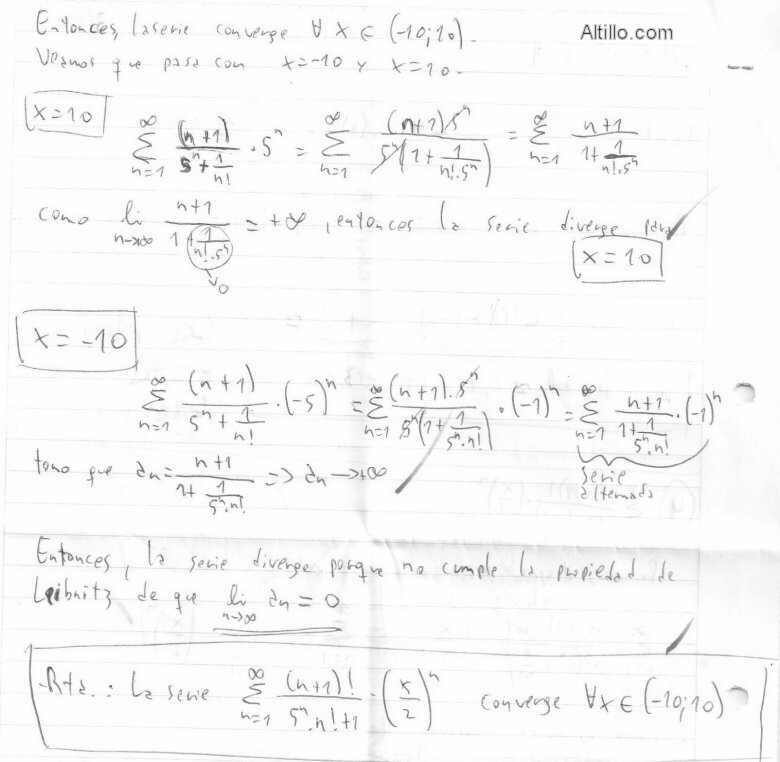 Entonces, la serie converge ∀ x ∈ (-10;10).
Altillo.com
Veamos que pasa con x=-10 y x=10.
x=10
∑_{n=1}^{∞} (n+1)/(5^n + 1/n!) · 5^n = ∑_{n=1}^{∞} (n+1)5^n/(5^n(1 + 1/(n!·5^n))) = ∑_{n=1}^{∞} (n+1)/(1 + 1/(n!·5^n))
como li_{n→∞} (n+1)/(1 + 1/(n!·5^n)) = +∞, entonces la serie diverge para
→0
x=10
x=-10
∑_{n=1}^{∞} (n+1)/(5^n + 1/n!) · (-5)^n = ∑_{n=1}^{∞} (n+1)·5^n/(5^n(1 + 1/(5^n·n!))) · (-1)^n = ∑_{n=1}^{∞} (n+1)/(1 + 1/(5^n·n!)) · (-1)^n
tomo que an = (n+1)/(1 + 1/(5^n·n!)) => an → +∞
serie
alternada
Entonces, la serie diverge porque no cumple la propiedad de
Leibnitz de que li_{n→∞} an = 0
Rta.: La serie ∑_{n=1}^{∞} (n+1)!/(5^n·n!+1) · (x/2)^n converge ∀x ∈ (-10;10)